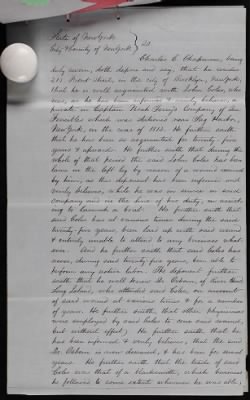 State of New York
City & County of New York } SS.
Charles C. Chapman, being
duly sworn, doth depose and say, that he resides
Street, in the city of Brooklyn, New York,
that he is well acquainted with John Coles, who
was, as he has been informed & verily believes, a
private in Captain Company of Sea
Fencibles which was stationed near Sag Harbor,
New York, in the war of 1812. He further saith
that he has been so acquainted for twenty five
years & upward. He further saith that during the
whole of that period the said John Coles has been
lame in the left leg by reason of a wound caused
by him, as this deponent has been informed and
verily believes, while he was in service in said
company and in the line of his duty, in assist-
ing to launch a boat. He further saith that
said Coles has at various times during the said
twenty five years, been laid up with said wound
& entirely unable to attend to any business what-
ever. And he further saith, that said Coles has
never, during said twenty five years, been able to
perform any active labor. The deponent further
saith that he well knew Dr. Osborn, of
Long Island, who attended said Coles, on account
of said wound at various times & for a number
of years. He further saith, that other physicians
were employed by said Coles to cure said wound,
but without effect. He further saith that he
has been informed & verily believes, that the said
Dr. Osborn is now deceased, & has been for several
years. He further saith that the trade of said
Coles was that of a blacksmith, which business
he followed to some extent whenever he was able,